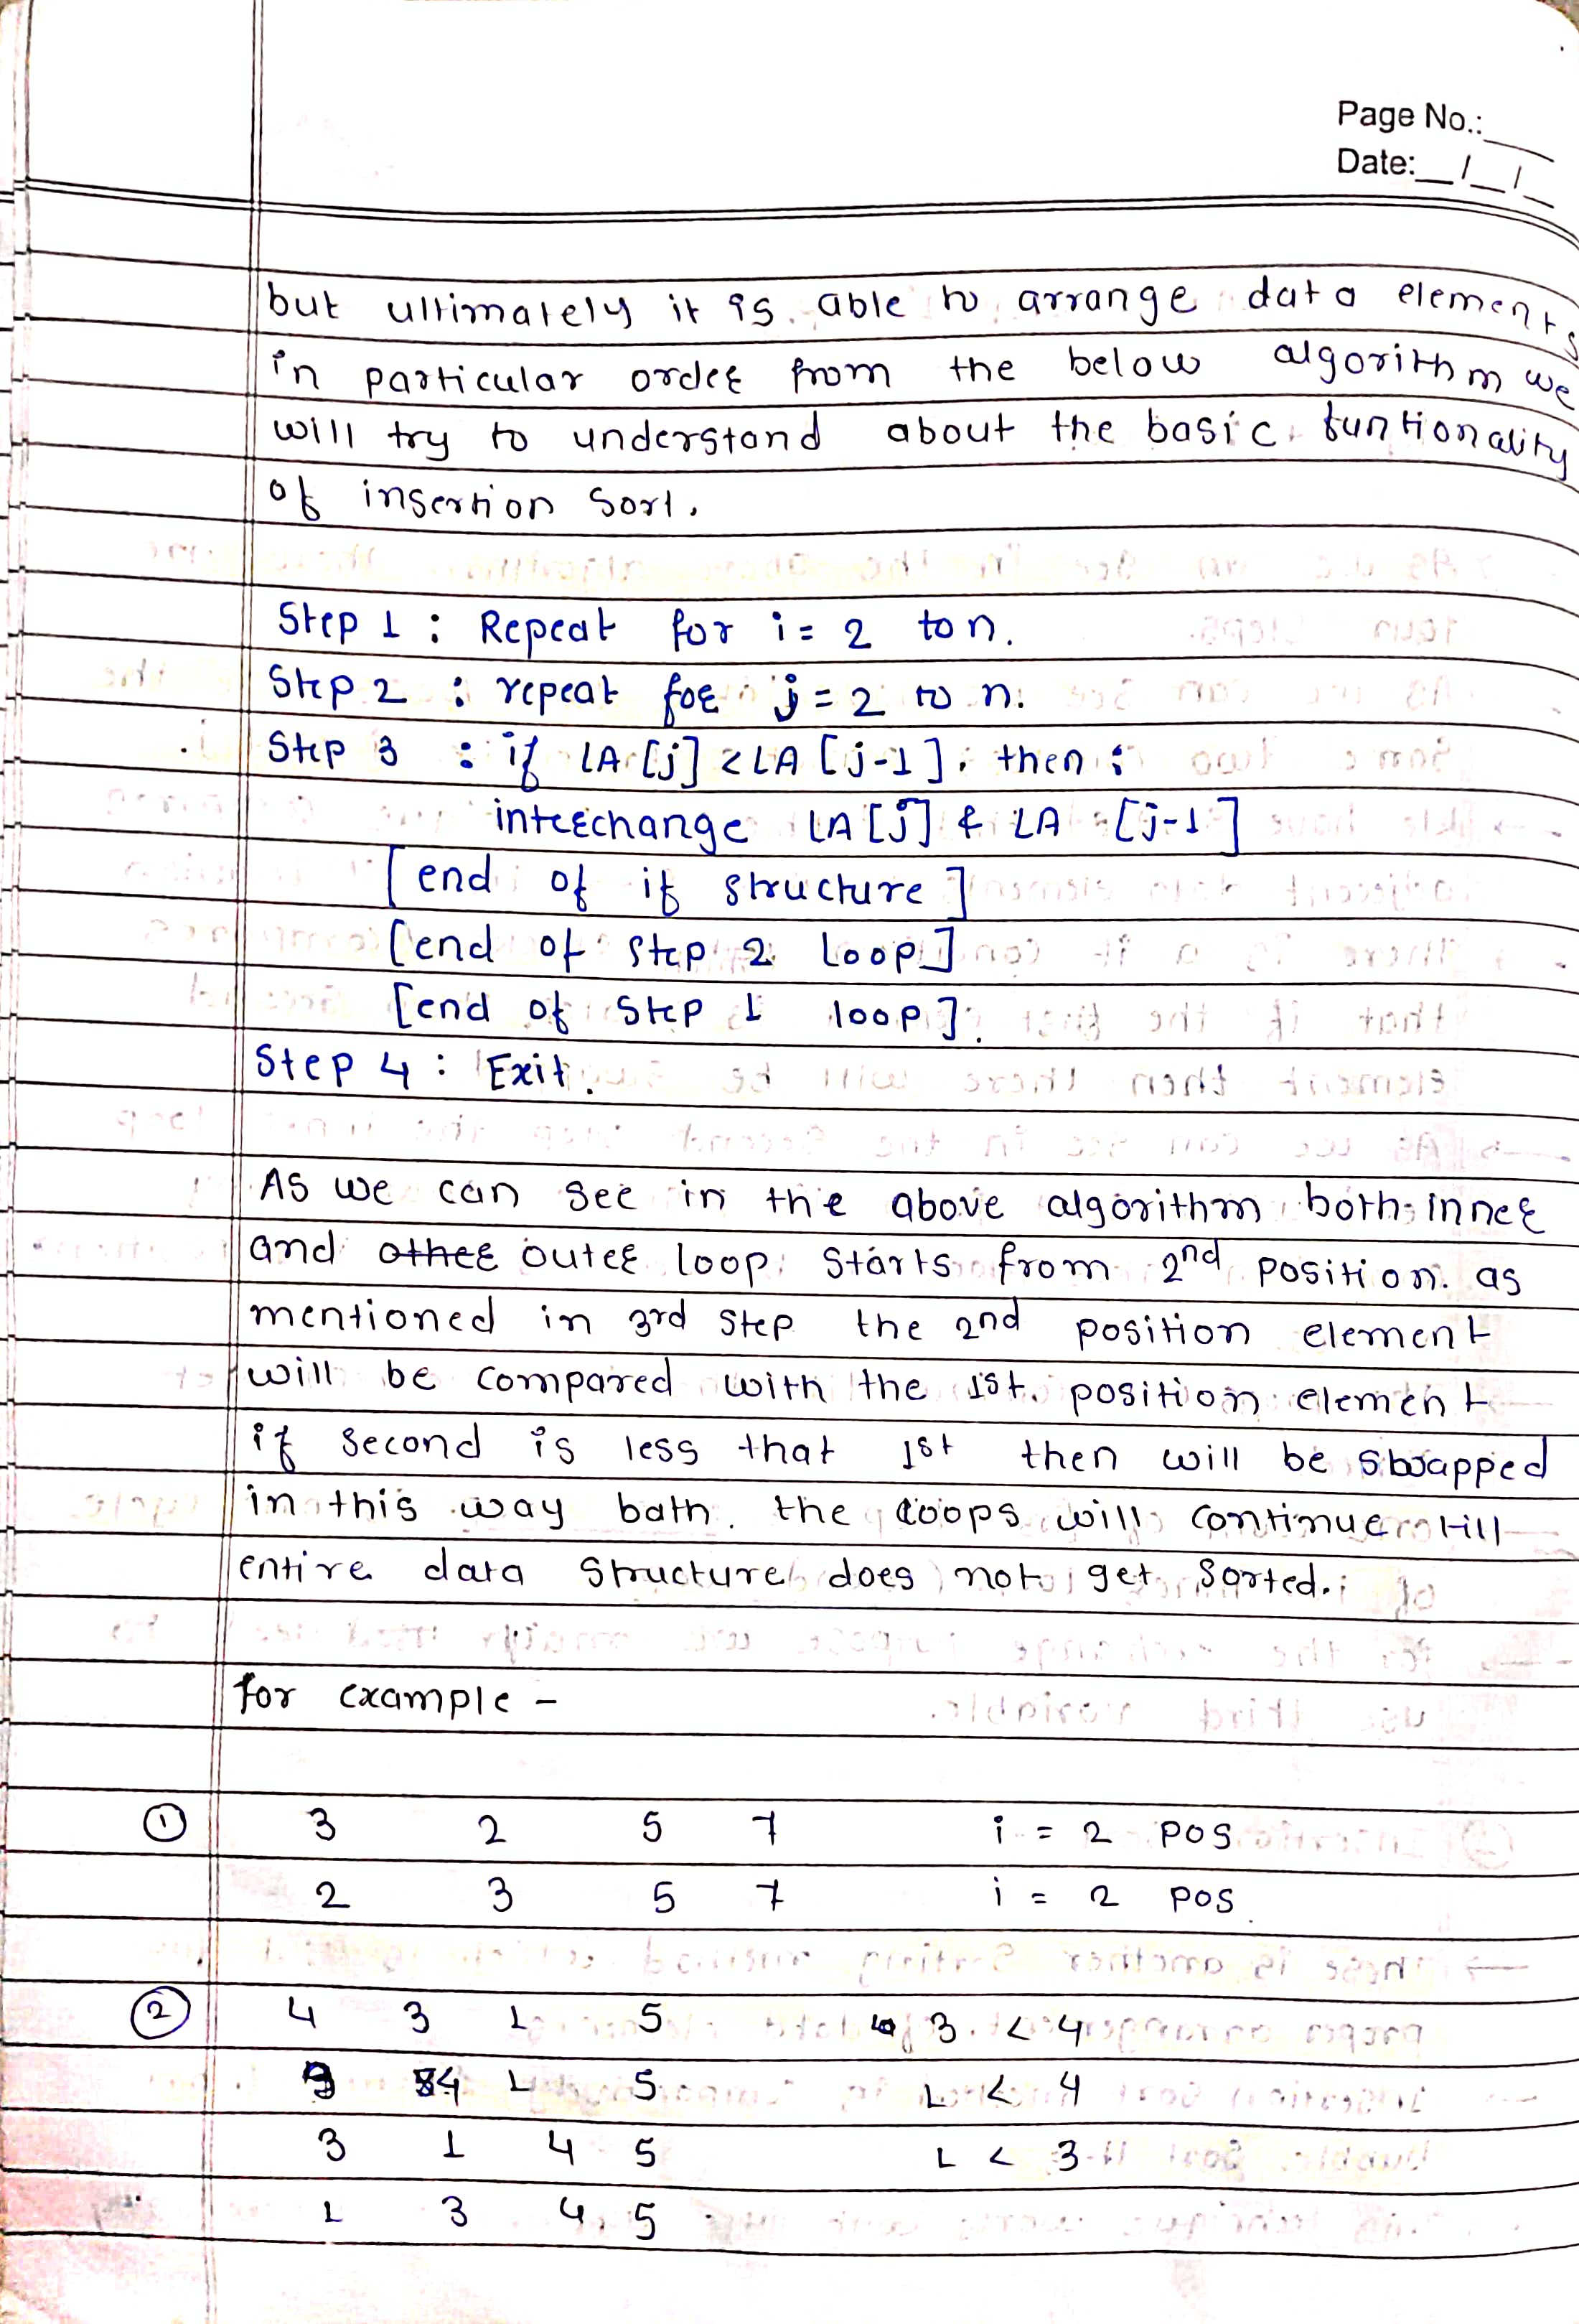 Page No.:
Date: / /
but ultimately it is able to arrange data elements
in particular order from the below algorithm we
will try to understand about the basic funtionality
of insertion sort.
Step 1 : Repeat for i = 2 to n.
Step 2 : repeat for j = 2 to n.
Step 3 : if LA [j] < LA [j-1], then :
interchange LA [j] & LA [j-1]
[end of if structure]
[end of step 2 loop]
[end of step 1 loop].
Step 4 : Exit.
As we can see in the above algorithm both inner
and other outer loop starts from 2nd position. as
mentioned in 3rd step the 2nd position element
will be compared with the 1st. position element
if second is less that 1st then will be swapped
in this way both the loops will continue till
entire data structure does not get sorted.
for example -
① 3 2 5 7 i = 2 pos
2 3 5 7 i = 2 pos
② 4 3 1 5 3 < 4
3 4 1 5 1 < 4
3 1 4 5 1 < 3
1 3 4 5